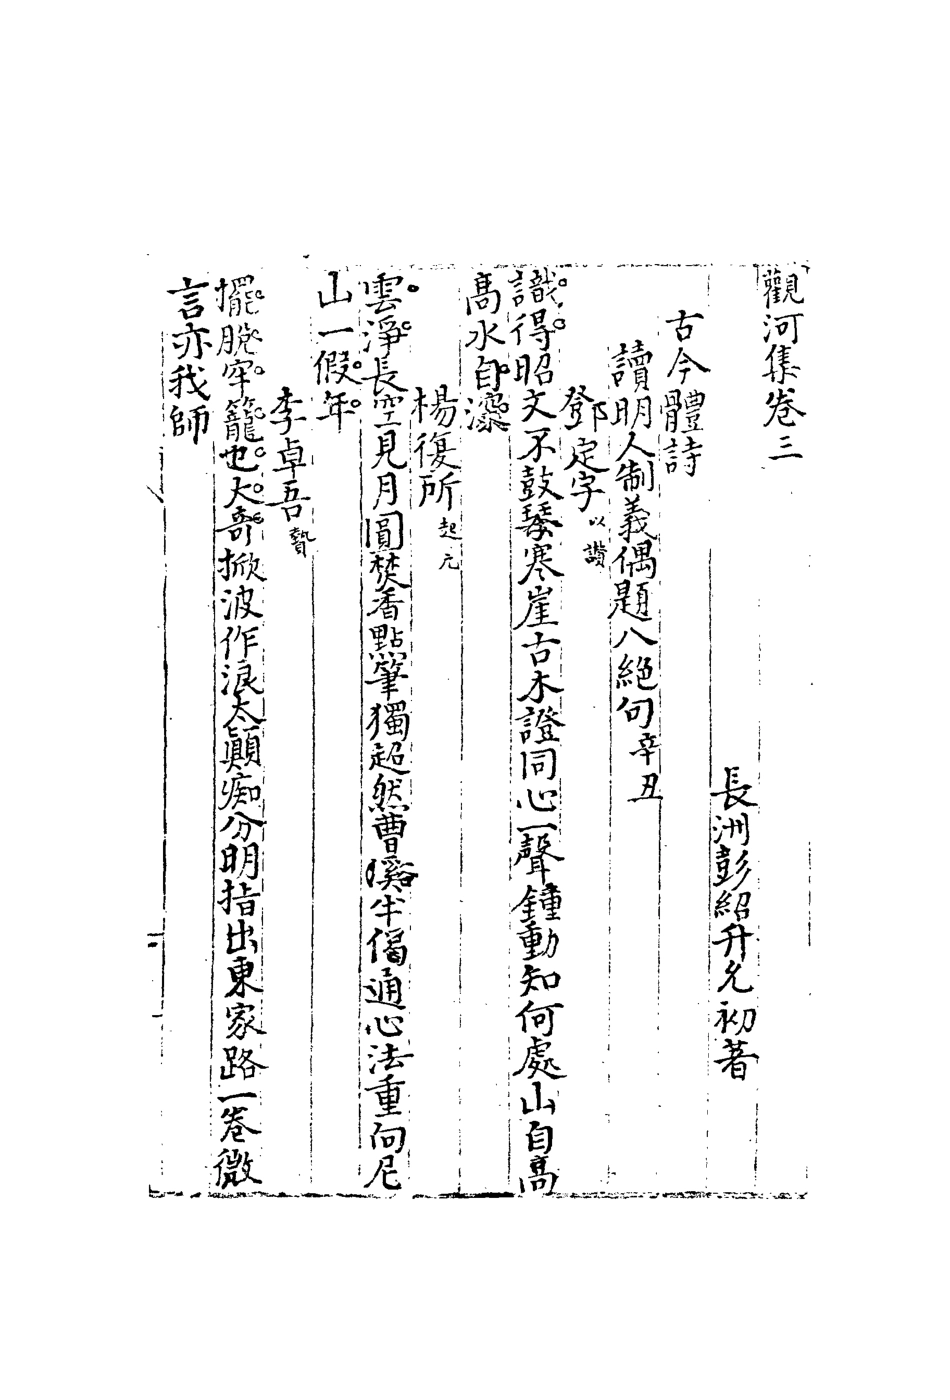 觀河集卷三
長洲彭紹升允初著
古今體詩
讀明人制義偶題八絕句辛丑
鄧定字以讚
識得昭文不鼓琴寒崖古木證同心一聲鐘動知何處山自高
高水自深
楊復所起元
雲淨長空見月圓焚香點筆獨超然曹溪半偈通心法重向尼
山一假年
李卓吾贄
擺脫牢籠也大奇掀波作浪太顛痴分明指出東家路一卷微
言亦我師